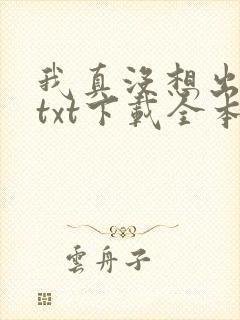 我真没想出
txt下载全本
雲舟子